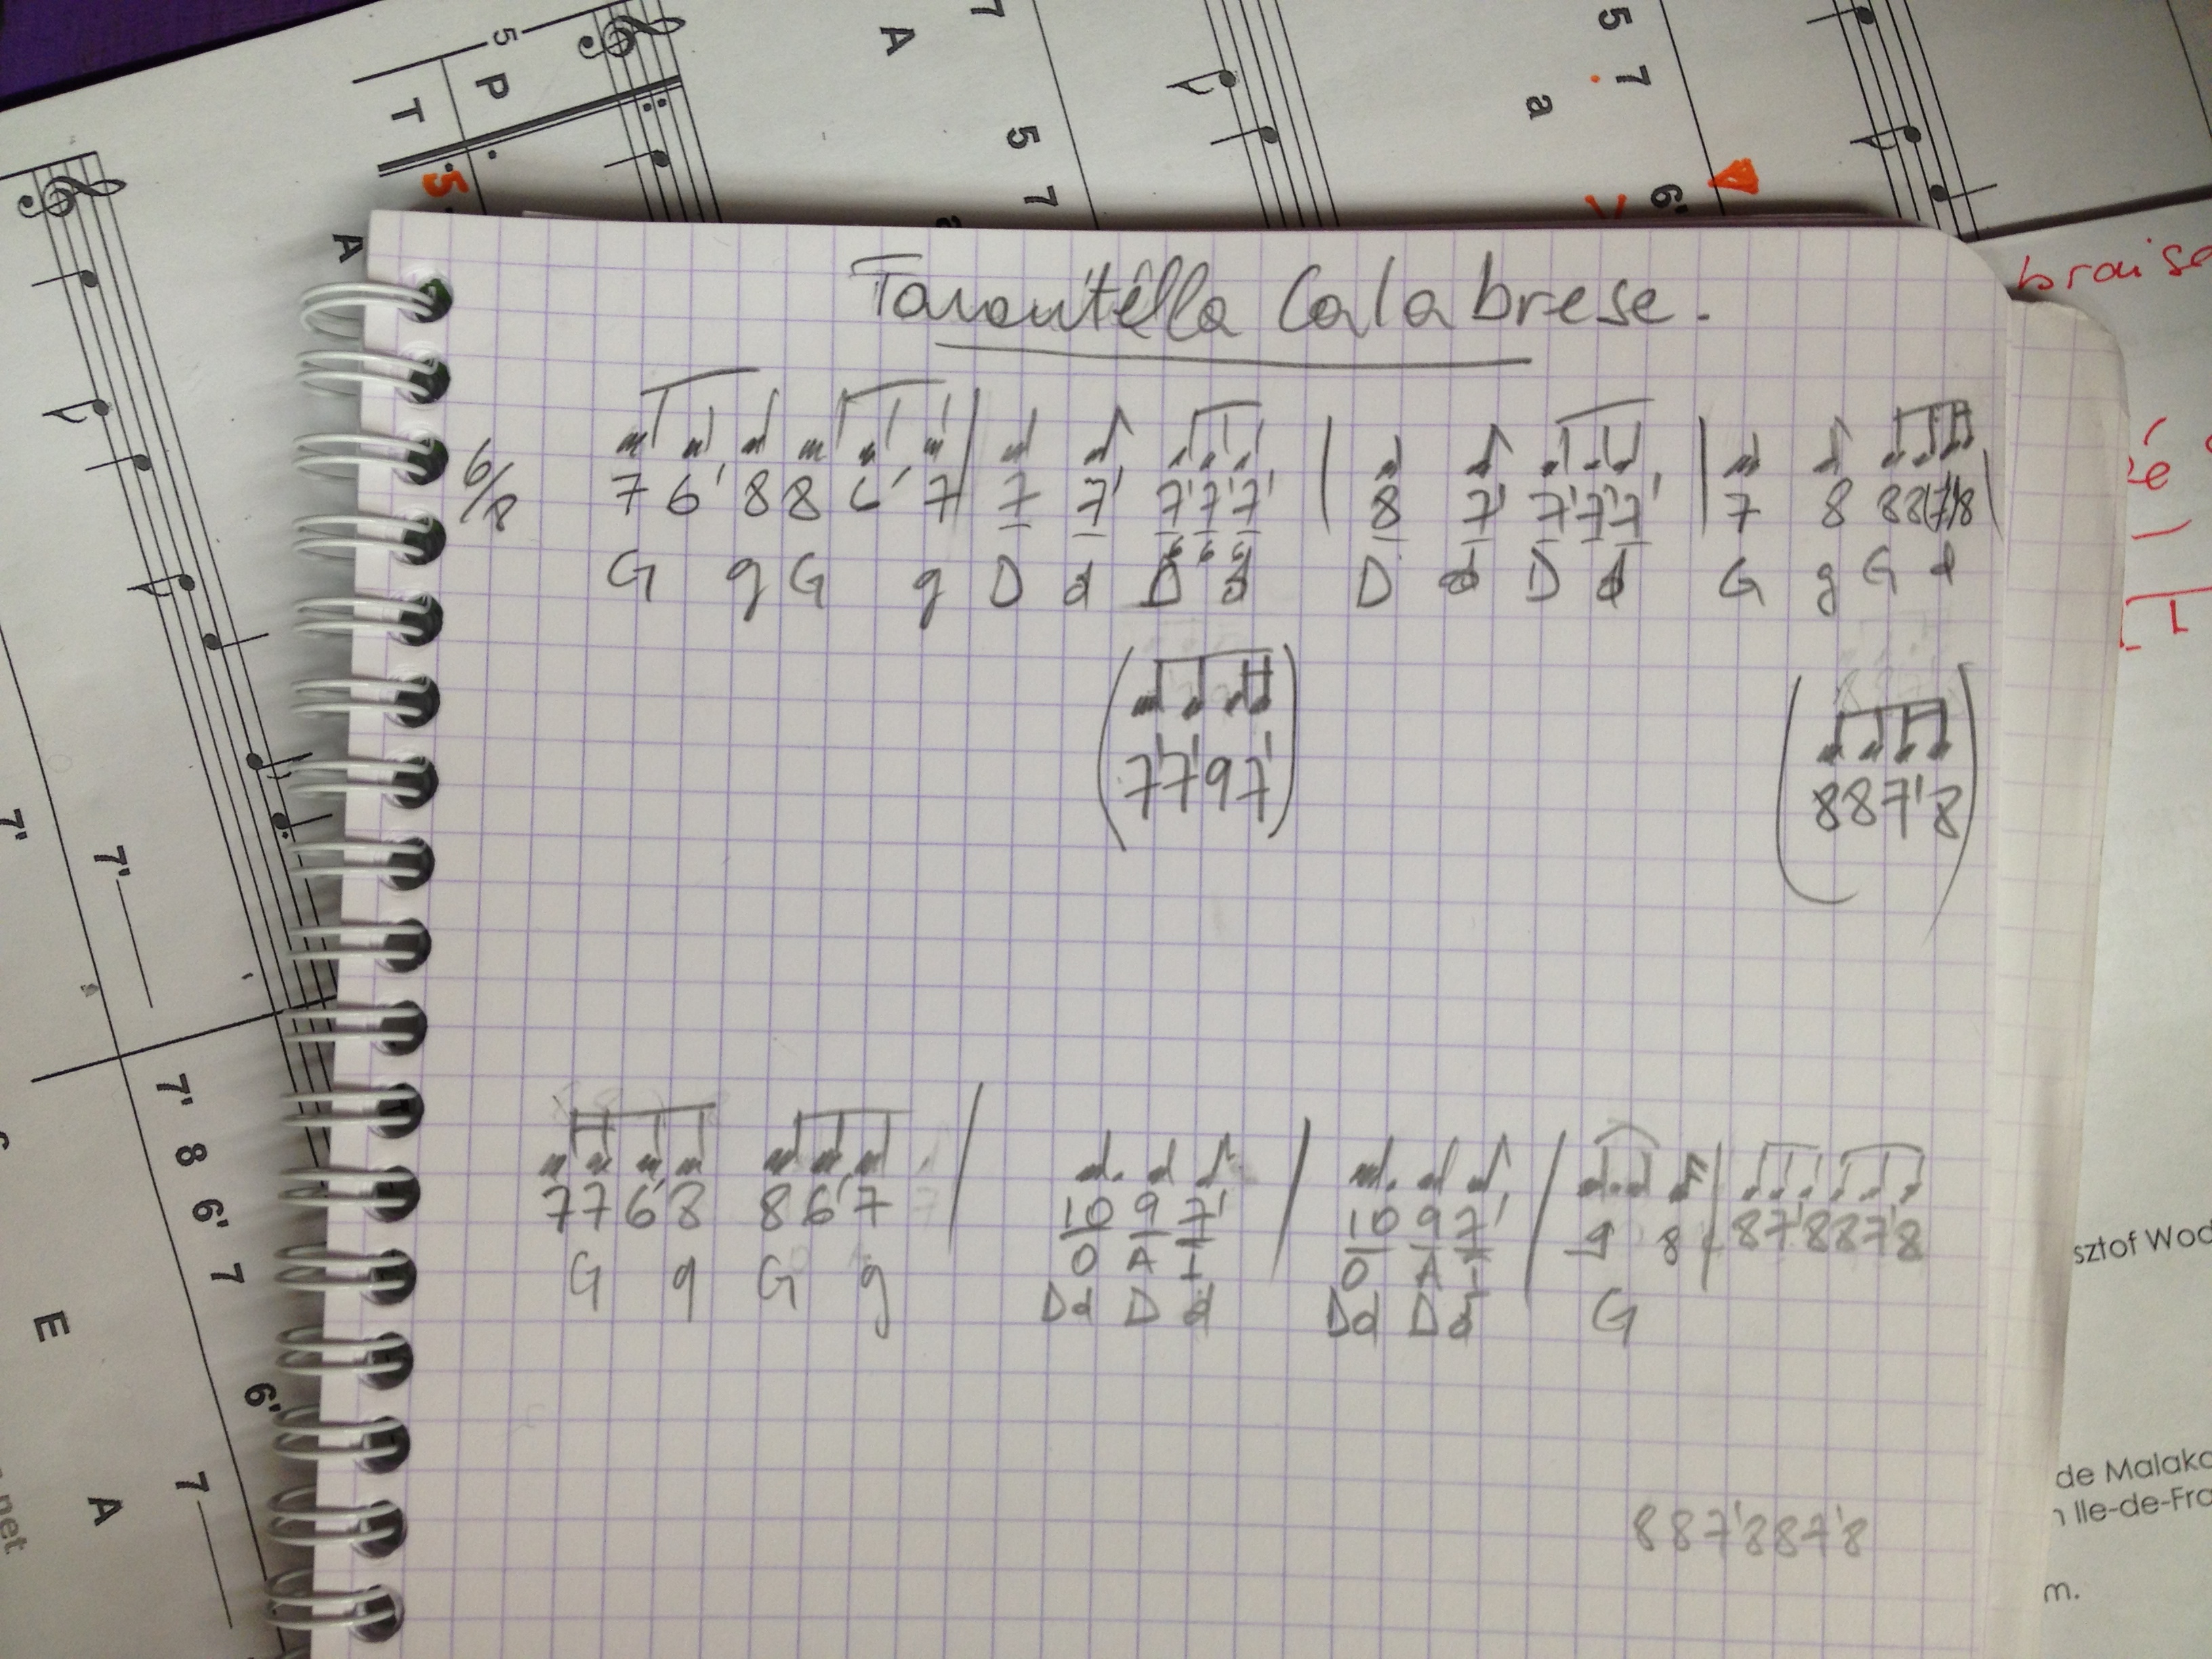 Tarantella Calabrese.
6/8 7 6' 8 8 6' 7 | 7 7' 7' 7' 7' | 8 7' 7' 7' 7' | 7 8 8 8 (7') 8 |
6 6 6
G g G g D d D d D d D d G g G d
(7' 7' 9 7')
(8 8 7' 8)
7 7 6' 8 8 6' 7 | 10 9 7' | 10 9 7' | 9 8 | 8 7' 8 8 7' 8
G g G g Dd D d Dd D d G
8 8 7' 8 8 7' 8
5 P T
5
A
7
5 7
5 7
a
6'
A
braise
7'
7'
7' 8 6' 7
E
6'
A
7
net
sztof Wod
de Malako
n Ile-de-Fra
m.